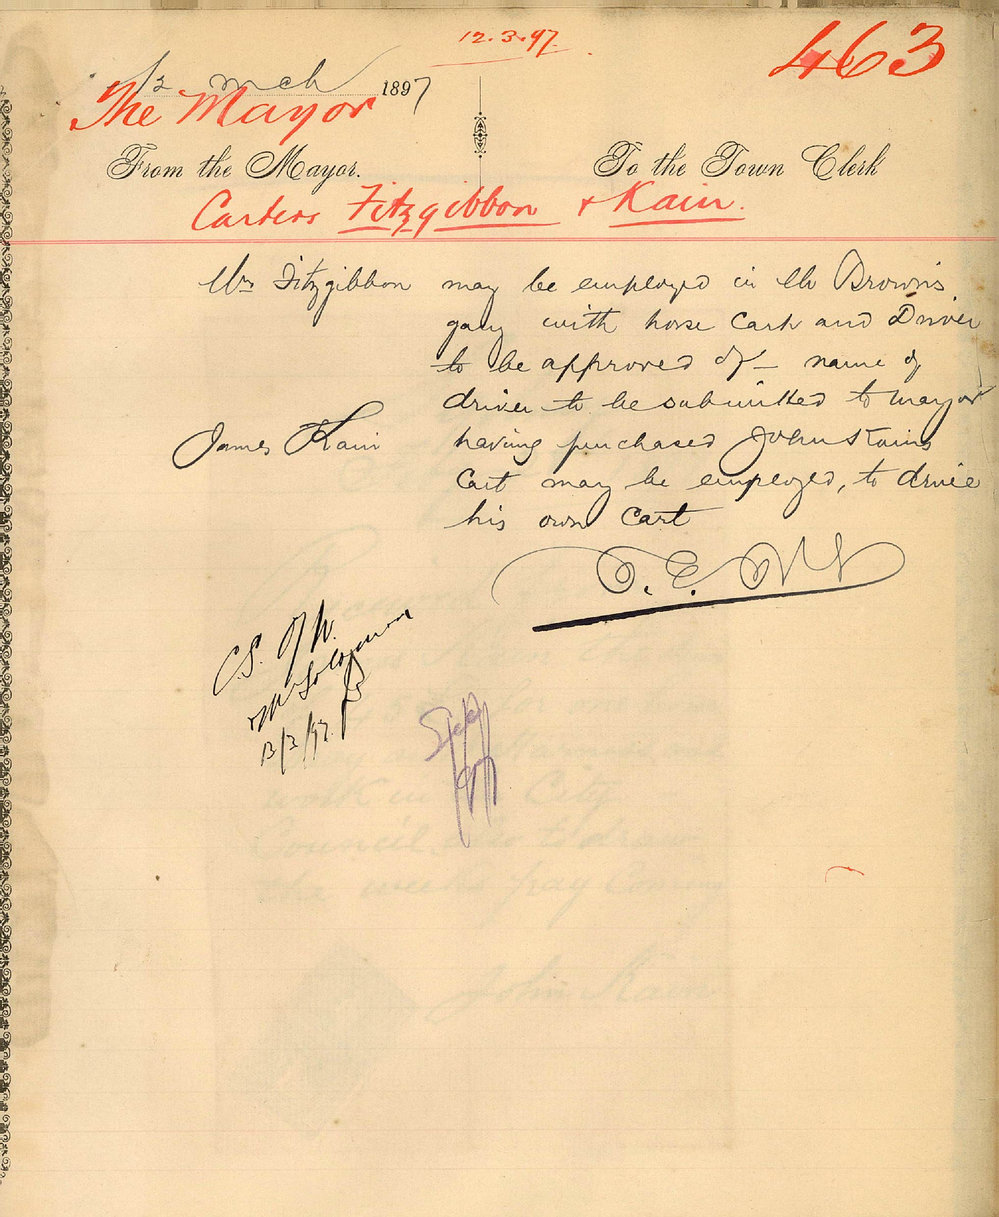 12.3.97.
463
12 mch 1897
The Mayor
From the Mayor. To the Town Clerk
Carters Fitzgibbon & Kain.
Mrs Fitzgibbon may be employed in Mr Brown's
gang with horse Cart and Driver
to be approved of – name of
driver to be submitted to mayor
James Kain having purchased John Kains
Cart may be employed, to drive
his own Cart
C.S. of W.
Mr Solomon
13/3/97.
Council also to draw
the weeks pay Coming
John Kain